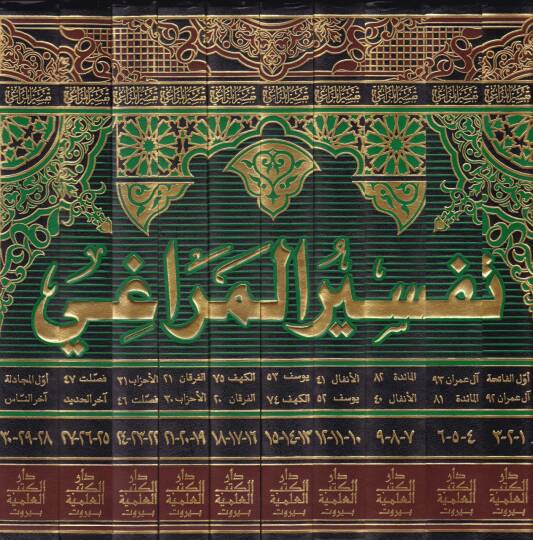 تفسير المراغي تفسير المراغي تفسير المراغي تفسير المراغي تفسير المراغي تفسير المراغي تفسير المراغي تفسير المراغي تفسير المراغي تفسير المراغي
تفسير المراغي
أول الفاتحة آل عمران ٩٣ المائدة ٨٢ الأنفال ٤١ يوسف ٥٣ الكهف ٧٥ الفرقان ٢١ الأحزاب ٣١ فصلت ٤٧ أول المجادلة
آل عمران ٩٢ المائدة ٨١ الأنفال ٤٠ يوسف ٥٢ الكهف ٧٤ الفرقان ٢٠ الأحزاب ٣٠ فصلت ٤٦ آخر الحديد آخر الناس
١-٢-٣ ٤-٥-٦ ٧-٨-٩ ١٠-١١-١٢ ١٣-١٤-١٥ ١٦-١٧-١٨ ١٩-٢٠-٢١ ٢٢-٢٣-٢٤ ٢٥-٢٦-٢٧ ٢٨-٢٩-٣٠
دار دار دار دار دار دار دار دار دار دار
الكتب الكتب الكتب الكتب الكتب الكتب الكتب الكتب الكتب الكتب
العلمية العلمية العلمية العلمية العلمية العلمية العلمية العلمية العلمية العلمية
بيروت بيروت بيروت بيروت بيروت بيروت بيروت بيروت بيروت بيروت